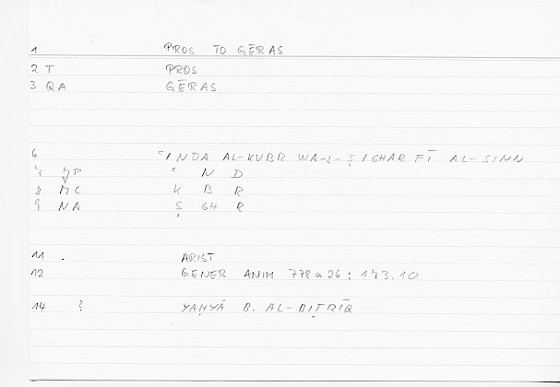 1 PROS TO GĒRAS
2 T PROS
3 QA GĒRAS
6 ʿINDA AL-KUBR WA-L-ṢIGHAR FĪ AL-SINN
7 JP ʿ N D
8 MC K B R
9 NA Ṣ GH R
11 . ARIST
12 GENER ANIM 778 a 26 : 173.10
14 ? YAḤYĀ B. AL-BIṬRĪQ